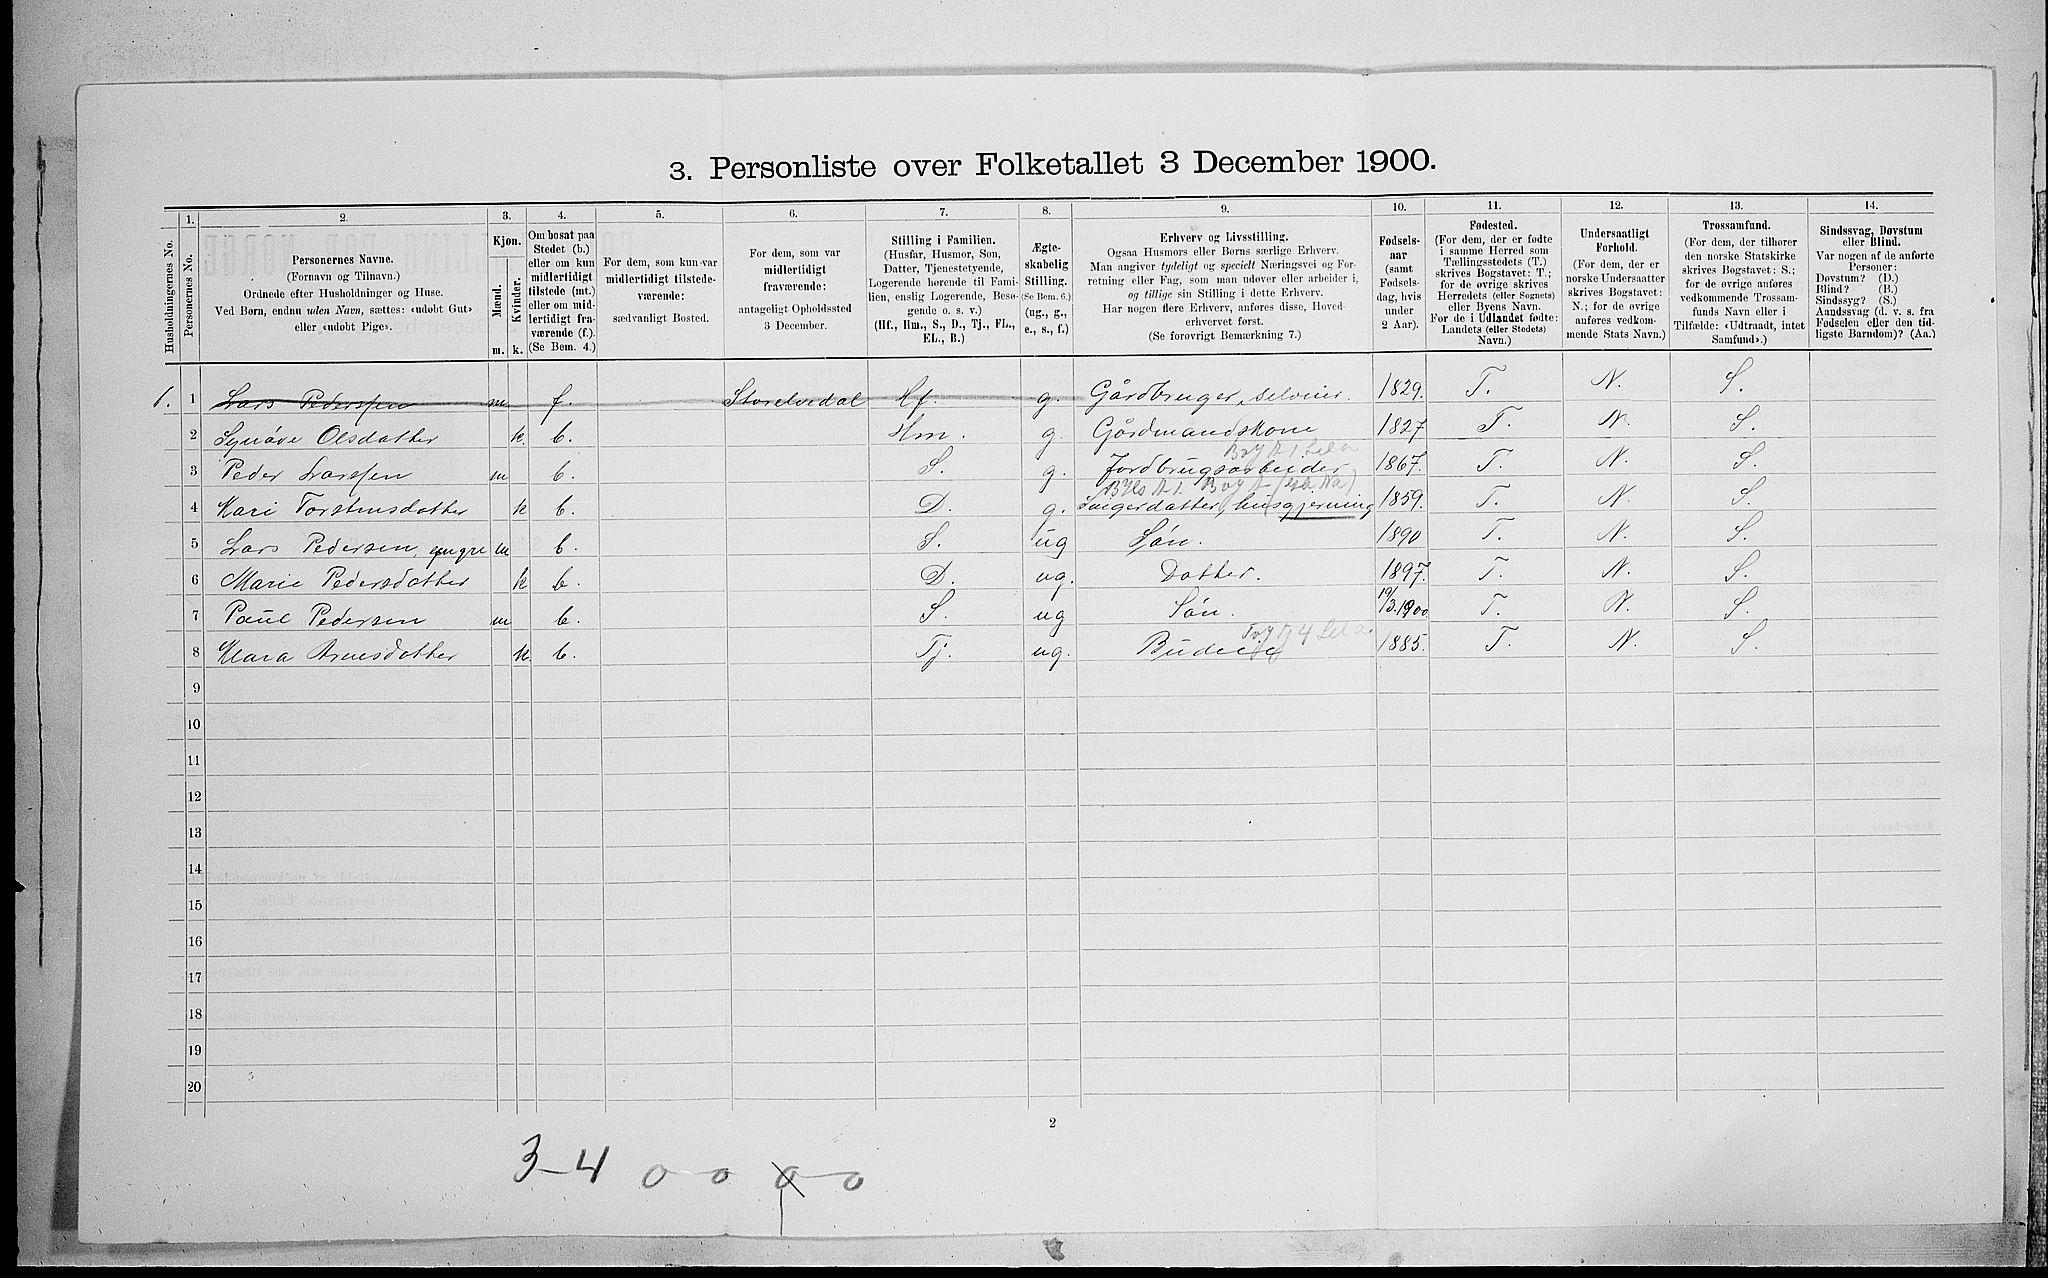 3. Personliste over Folketallet 3 December 1900.
Husholdningernes No.
1.
Personernes No.
2.
Personernes Navne.
(Fornavn og Tilnavn.)
Ordnede efter Husholdninger og Huse.
Ved Børn, endnu uden Navn, sættes: «udøbt Gut»
eller «udøbt Pige».
3.
Kjøn.
Mænd.
Kvinder.
m. k.
4.
Om bosat paa
Stedet (b.)
eller om kun
midlertidigt
tilstede (mt.)
eller om mid-
lertidigt fra-
værende (f.).
(Se Bem. 4.)
5.
For dem, som kun var
midlertidigt tilstede-
værende:
sædvanligt Bosted.
6.
For dem, som var
midlertidigt
fraværende:
antageligt Opholdssted
3 December.
7.
Stilling i Familien.
(Husfar, Husmor, Søn,
Datter, Tjenestetyende,
Logerende hørende til Fami-
lien, enslig Logerende, Besø-
gende o. s. v.)
(Hf., Hm., S., D., Tj., FL.,
EL., B.)
8.
Ægte-
skabelig
Stilling.
(Se Bem. 6.)
(ug., g.,
e., s., f.)
9.
Erhverv og Livsstilling.
Ogsaa Husmors eller Børns særlige Erhverv.
Man angiver tydeligt og specielt Næringsvei og For-
retning eller Fag, som man udøver eller arbeider i,
og tillige sin Stilling i dette Erhverv.
Har nogen flere Erhverv, anføres disse, Hoved-
erhvervet først.
(Se forøvrigt Bemærkning 7.)
10.
Fødsels-
aar
(samt
Fødsels-
dag, hvis
under
2 Aar).
11.
Fødested.
(For dem, der er fødte
i samme Herred som
Tællingsstedets (T.)
skrives Bogstavet: T.;
for de øvrige skrives
Herredets (eller Sognets)
eller Byens Navn.
For de i Udlandet fødte:
Landets (eller Stedets)
Navn.)
12.
Undersaatligt
Forhold.
(For dem, der er
norske Undersaatter
skrives Bogstavet:
N.; for de øvrige
anføres vedkom-
mende Stats Navn.)
13.
Trossamfund.
(For dem, der tilhører
den norske Statskirke
skrives Bogstavet: S.;
for de øvrige anføres
vedkommende Trossam-
funds Navn eller i
Tilfælde: «Udtraadt, intet
Samfund».)
14.
Sindssvag, Døvstum
eller Blind.
Var nogen af de anførte
Personer:
Døvstum? (D.)
Blind? (B.)
Sindssyg? (S.)
Aandssvag (d. v. s. fra
Fødselen eller den tid-
ligste Barndom)? (Aa.)
1. 1 Lars Pederssen m f. Storelvedal Hf. g. Gårdbruger, selveier. 1829. T. N. S.
2 Synöve Olsdatter k b. Hm. g. Gårdmandskone 1827 T. N. S.
3 Peder Larssen m b. S. g. Jordbrugsarbeider 1867. T. N. S.
4 Mari Torstensdatter k b. D. g. Svigerdatter, husgjerning 1859. T. N. S.
5 Lars Pedersen, yngre m b. S. ug Sön. 1890 T. N. S.
6 Marie Pedersdatter k b. D. ug. Datter. 1897. T. N. S.
7 Paul Pedersen m b. S. ug Sön. 19/3.1900 T. N. S.
8 Mara Arnesdatter k b. Tj. ug. Budeie 1885. T. N. S.
9
10
11
12
13
14
15
16
17
18
19
20
2
3-4 0 0 0-0